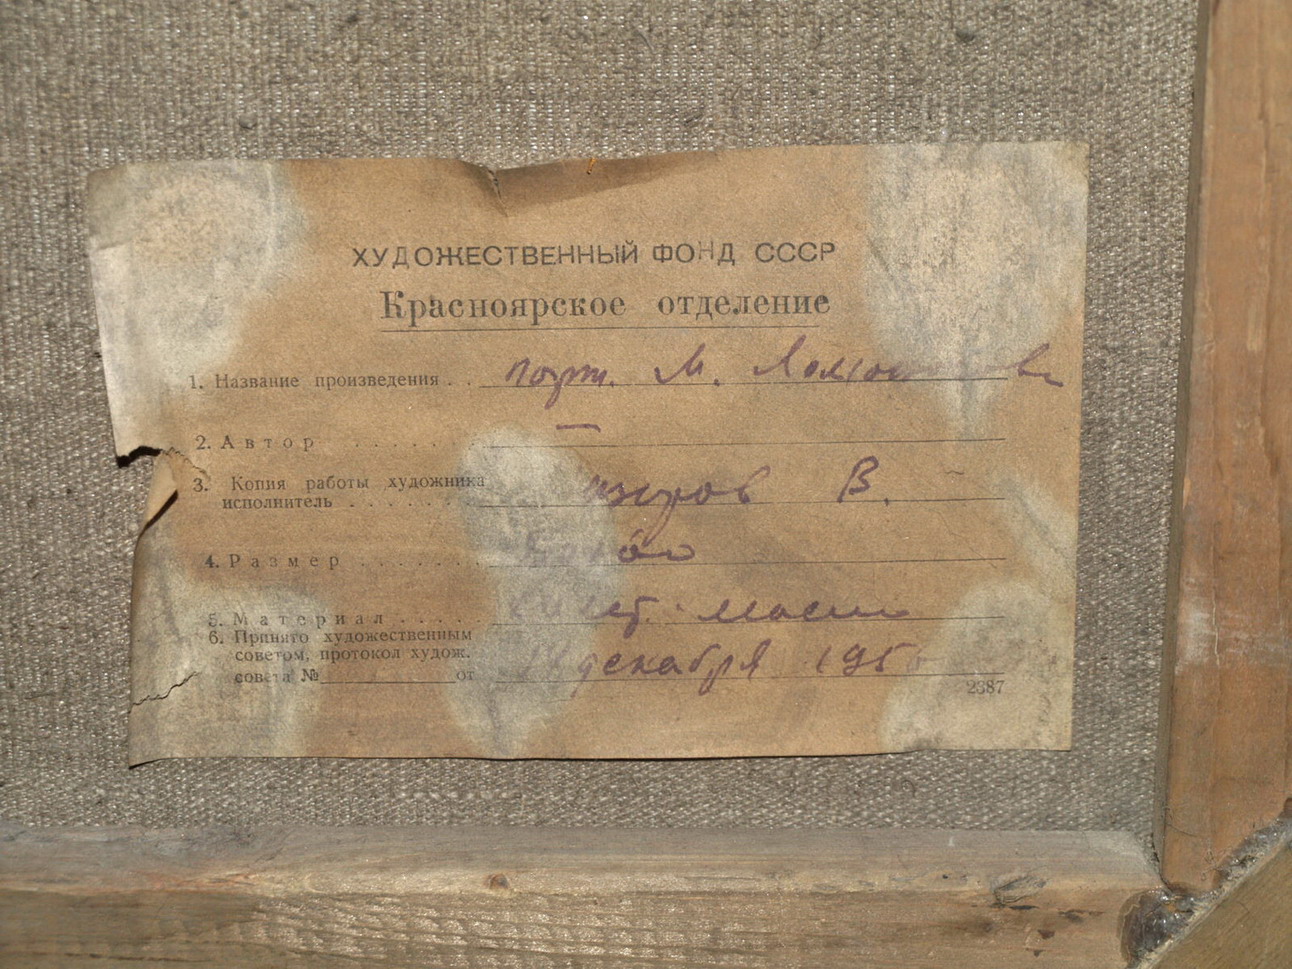 ХУДОЖЕСТВЕННЫЙ ФОНД СССР
Красноярское отделение
1. Название произведения . . портр. М. Ломоносова
2. Автор . . . . . . . —
3. Копия работы художника
исполнитель . . . . . . . В.
4. Размер . . . . . . .
5. Материал . . . . . масло
6. Принято художественным
советом, протокол худож.
совета № от декабря
2387